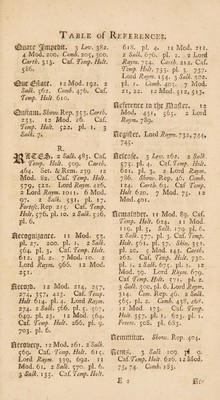 TABLE of REFERENCES.
Quare Impedit. 3 Lev. 382.
4 Mod. 200. Comb. 205, 300.
Carth. 313. Cas. Temp. Holt.
586.
Que Estate. 12 Mod. 192. 2
Salk. 562. Comb. 476. Cas.
Temp. Holt. 610.
Quitam. Show. Rep. 353. Carth.
233. 12 Mod. 16. Cas.
Temp. Holt. 522. pl. 1. 3
Salk. 7.
R.
Rates. 2 Salk. 483. Cas.
Temp. Holt. 559. Carth.
464. Set. & Rem. 279. 12
Mod. 82. Cas. Temp. Holt.
579, 522. Carth. 426.
2 Lord Raym. 1011. 6 Mod.
97. 2 Salk. 531. pl. 17.
Fortesc. Rep. 215. Cas. Temp.
Holt. 576. pl. 10. 2 Salk. 526.
pl. 6.
Recognizance. 11 Mod. 53.
pl. 27. 200. pl. 1. 2 Salk.
564. pl. 3. Cas. Temp. Holt.
612. pl. 2. 7 Mod. 10. 2
Lord Raym. 966. 12 Mod.
251.
Record. 12 Mod. 214, 257,
274, 357, 423. Cas. Temp.
Holt. 614. pl. 4. Lord Raym.
274. 2 Salk. 566. pl. 5. 507,
649. pl. 23. 12 Mod. 564.
Cas. Temp. Holt. 266. pl. 9.
703. pl. 6.
Recovery. 12 Mod. 261. 2 Salk.
569. Cas. Temp. Holt. 615.
Lord Raym. 339, 692. 11
Mod. 61. 2 Salk. 570. pl. 6.
3 Salk. 135. Cas. Temp. Holt.
618. pl. 4. 11 Mod. 211.
2 Salk. 676. pl. 1. 2 Lord
Raym. 754. Carth. 212. Cas.
Temp. Holt. 735. pl. 3. 737.
Lord Raym. 154. 3 Salk. 302.
pl. 1. Comb. 407. 7 Mod.
21, 22. 12 Mod. 512, 513.
Reference to the Master. 12
Mod. 451, 565. 2 Lord
Raym. 789.
Register. Lord Raym. 732, 734,
745.
Release. 3 Lev. 262. 2 Salk.
575. pl. 4. Cas. Temp. Holt.
621. pl. 5. 2 Lord Raym.
786. Show. Rep. 46. Comb.
124. Carth. 63. Cas. Temp.
Holt. 620. 7 Mod. 75. 12
Mod. 401.
Remainder. 11 Mod. 89. Cas.
Temp. Holt. 624. 11 Mod.
119. pl. 5. Salk. 179. pl. 6.
2 Salk. 577. pl. 3. Cas. Temp.
Holt. 561. pl. 37. Skin. 351.
pl. 20. 5 Mod. 143. Carth.
262. Cas. Temp. Holt. 732.
pl. 1. 2 Salk. 675. pl. 1. 12
Mod. 79. Lord Raym. 679.
Cas. Temp. Holt. 731. pl. 2.
3 Salk. 300. pl. 6. Lord Raym.
314. Com. Rep. 46. 2 Salk.
565. pl. 2. Comb. 437, 467.
12 Mod. 173. Cas. Temp.
Holt. 557. pl. 1. 623. pl. 1.
Freem. 508. pl. 683.
Remittitur. Show. Rep. 404.
Rents. 3 Salk. 309. pl. 9.
Cas. Temp. Holt. 626. 12 Mod.
73, 74. Comb. 183.
E 2